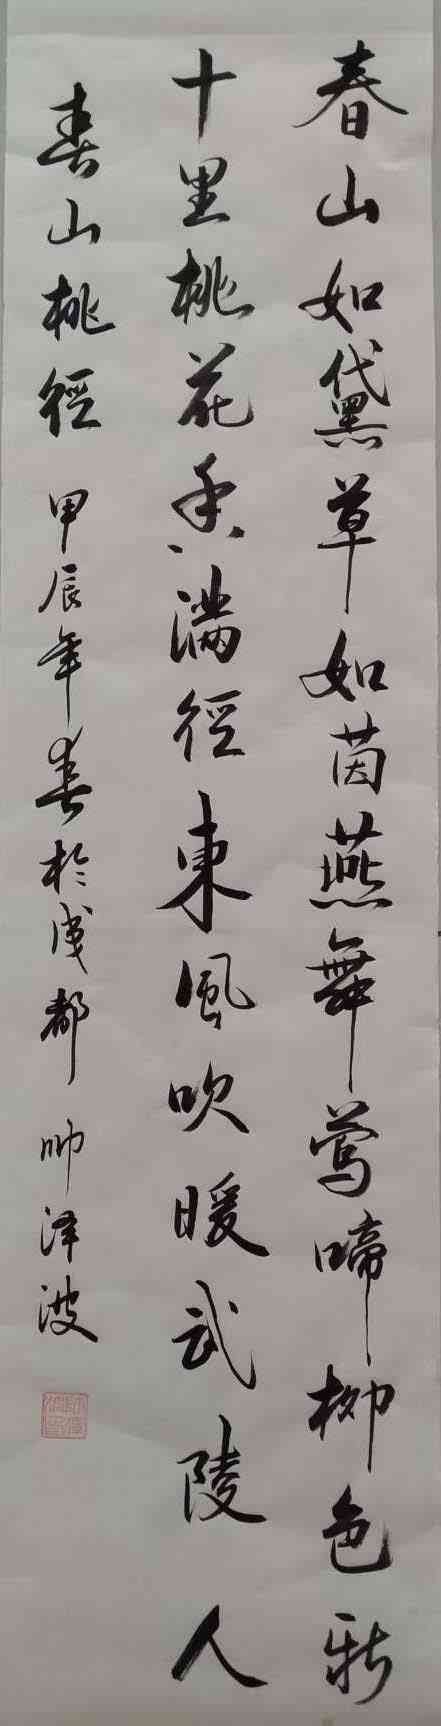 春山如黛草如茵燕舞莺啼柳色新
十里桃花香满徑東風吹暖武陵人
春山桃徑 甲辰年春於成都 帅泽波